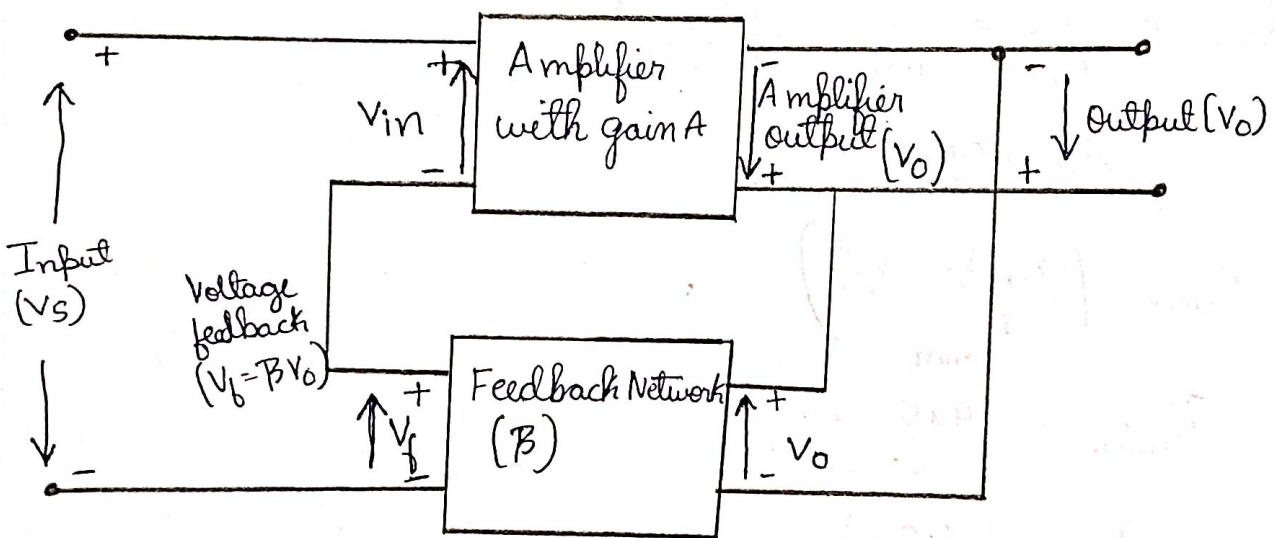 +
+
Vin
-
Amplifier
with gain A
-
Amplifier
output
(Vo)
+
-
Output (Vo)
+
Input
(Vs)
-
Voltage
feedback
(Vf=βVo)
+
Vf
-
Feedback Network
(β)
+
Vo
-